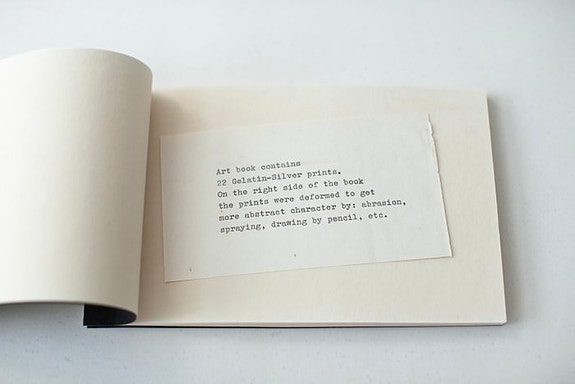 Art book contains
22 Gelatin-Silver prints.
On the right side of the book
the prints were deformed to get
more abstract character by: abrasion,
spraying, drawing by pencil, etc.